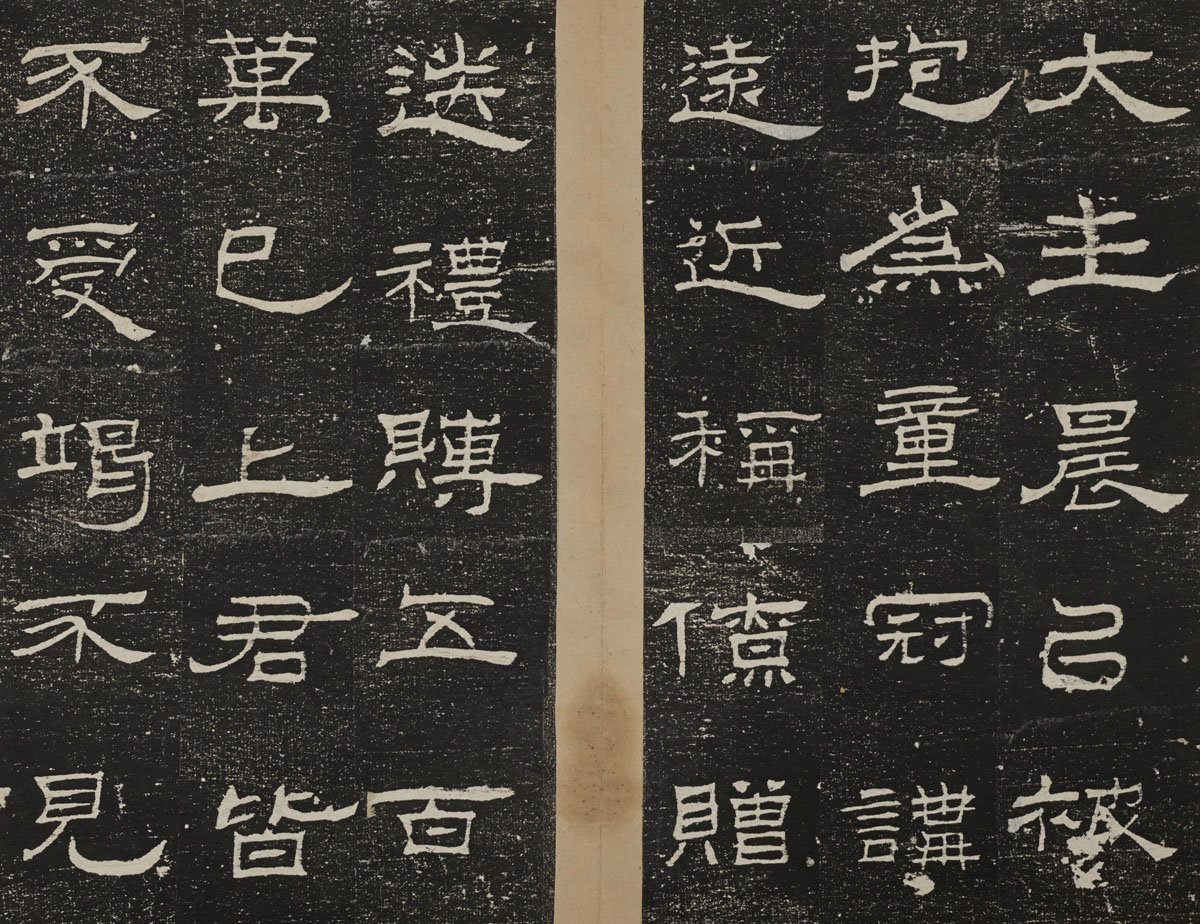 大主晨㠯被
抱為童冠講
遠近稱僚贈
送禮賻五百
萬已上君皆
不受竭不見